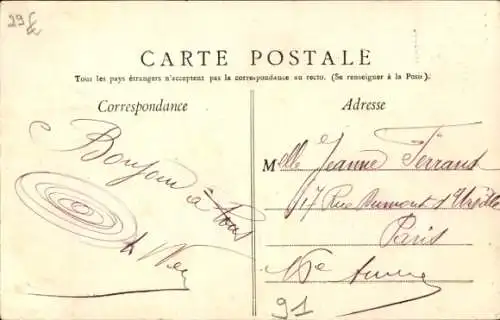 29
CARTE POSTALE
Tous les pays étrangers n'acceptent pas la correspondance au recto. (Se renseigner à la Poste).
Correspondance
Adresse
Bonjour à Tous
Melle Jeanne
17 Rue Dumont d'Urville
Paris
91